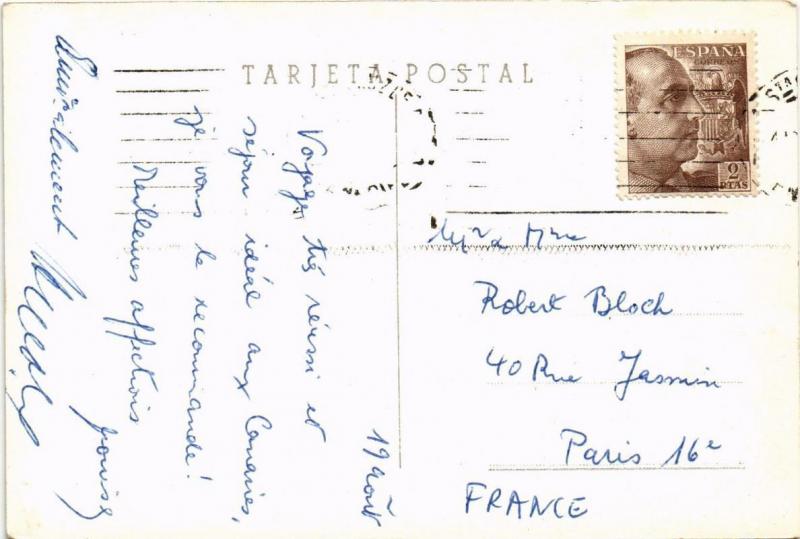 TARJETA POSTAL
ESPAÑA
CORREOS
2
PTAS
19 août
Voyage très réussi et
séjour idéal aux Canaries,
je vous le recommande!
Meilleures affections
Amicalement
Mr & Mme
Robert Bloch
40 Rue Jasmin
Paris 16e
FRANCE